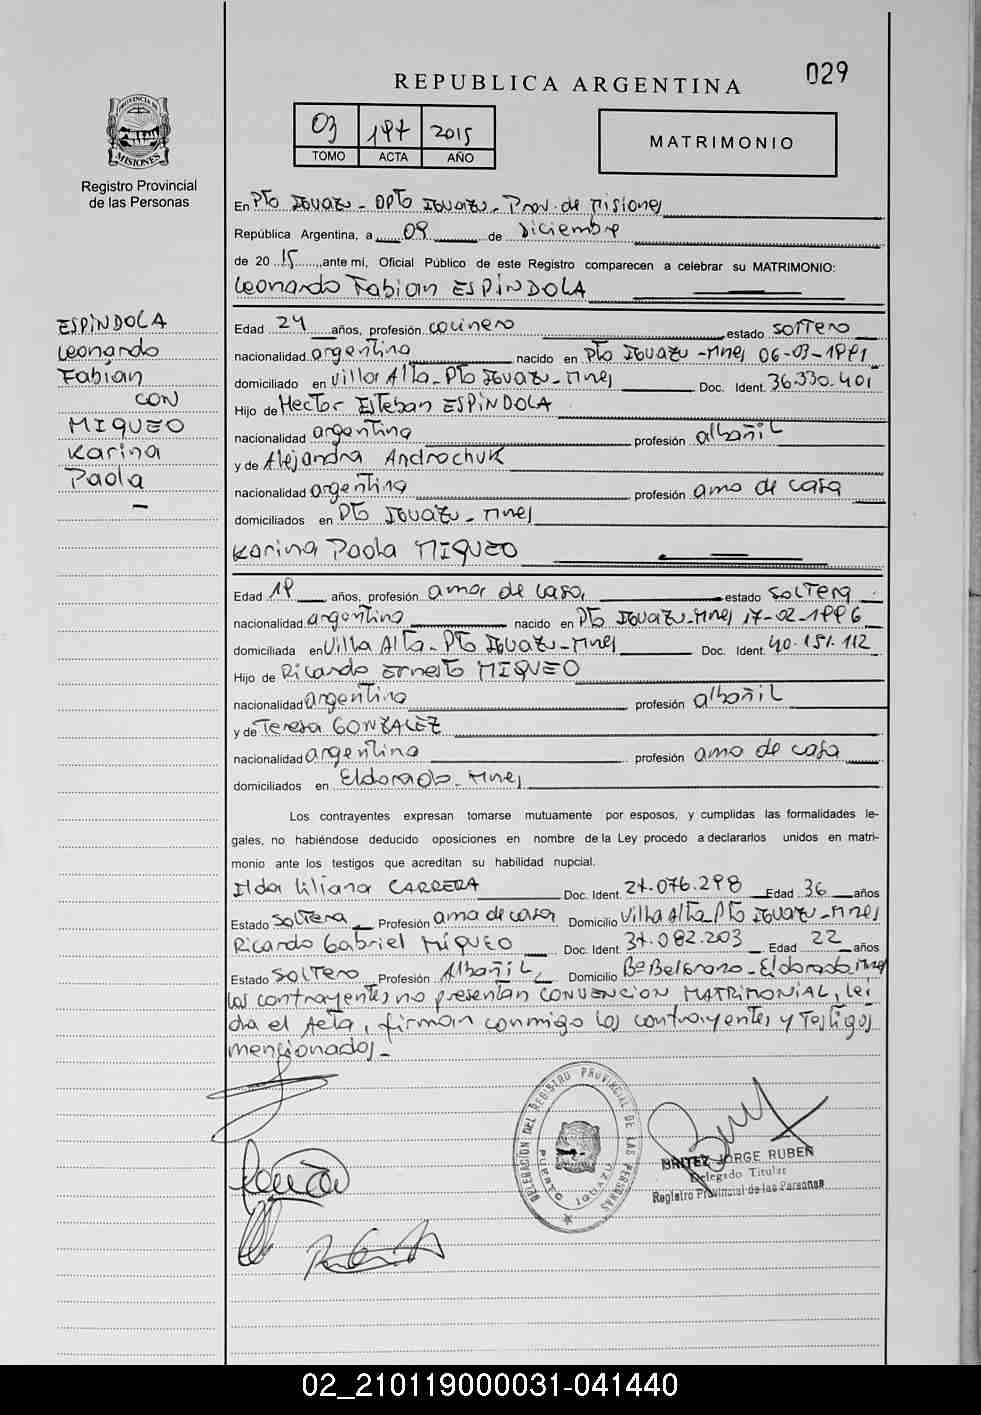 029
REPUBLICA ARGENTINA
03 197 2015
TOMO ACTA AÑO
MATRIMONIO
PROVINCIA DE
MISIONES
Registro Provincial
de las Personas
En Pto Iguazu - Dpto Iguazu - Prov. de Misiones
República Argentina, a 09 de Diciembre
de 2015 ante mí, Oficial Público de este Registro comparecen a celebrar su MATRIMONIO:
Leonardo Fabian ESPINDOLA
ESPINDOLA
Leonardo
Fabian
CON
MIQUEO
Karina
Paola
Edad 24 años, profesión cocinero estado soltero
nacionalidad argentina nacido en Pto Iguazu - Mnes 06-03-1991
domiciliado en Villa Alta - Pto Iguazu - Mnes Doc. Ident. 36.330.401
Hijo de Hector Esteban ESPINDOLA
nacionalidad argentina profesión albañil
y de Alejandra Androchuk
nacionalidad argentina profesión ama de casa
domiciliados en Pto Iguazu - Mnes
Karina Paola MIQUEO
Edad 19 años, profesión ama de casa estado soltera
nacionalidad argentina nacido en Pto Iguazu - Mnes 17-02-1996
domiciliada en Villa Alta - Pto Iguazu - Mnes Doc. Ident. 40.151.112
Hijo de Ricardo Ernesto MIQUEO
nacionalidad argentina profesión albañil
y de Teresa GONZALEZ
nacionalidad argentina profesión ama de casa
domiciliados en Eldorado - Mnes
Los contrayentes expresan tomarse mutuamente por esposos, y cumplidas las formalidades le-
gales, no habiéndose deducido oposiciones en nombre de la Ley procedo a declararlos unidos en matri-
monio ante los testigos que acreditan su habilidad nupcial.
Ilda Liliana CARRERA Doc. Ident. 27.076.298 Edad 36 años
Estado soltera Profesión ama de casa Domicilio Villa Alta - Pto Iguazu - Mnes
Ricardo Gabriel MIQUEO Doc. Ident. 37.082.203 Edad 22 años
Estado soltero Profesión Albañil Domicilio Bº Belgrano - Eldorado, Mnes
los contrayentes no presentan CONVENCION MATRIMONIAL, lei
da el Acta, firman conmigo los contrayentes y Testigos
mencionados -
DELEGACIÓN DEL REGISTRO PROVINCIAL DE LAS PERSONAS
PUERTO IGUAZU
BRITEZ JORGE RUBEN
Delegado Titular
Registro Provincial de las Personas
02_210119000031-041440